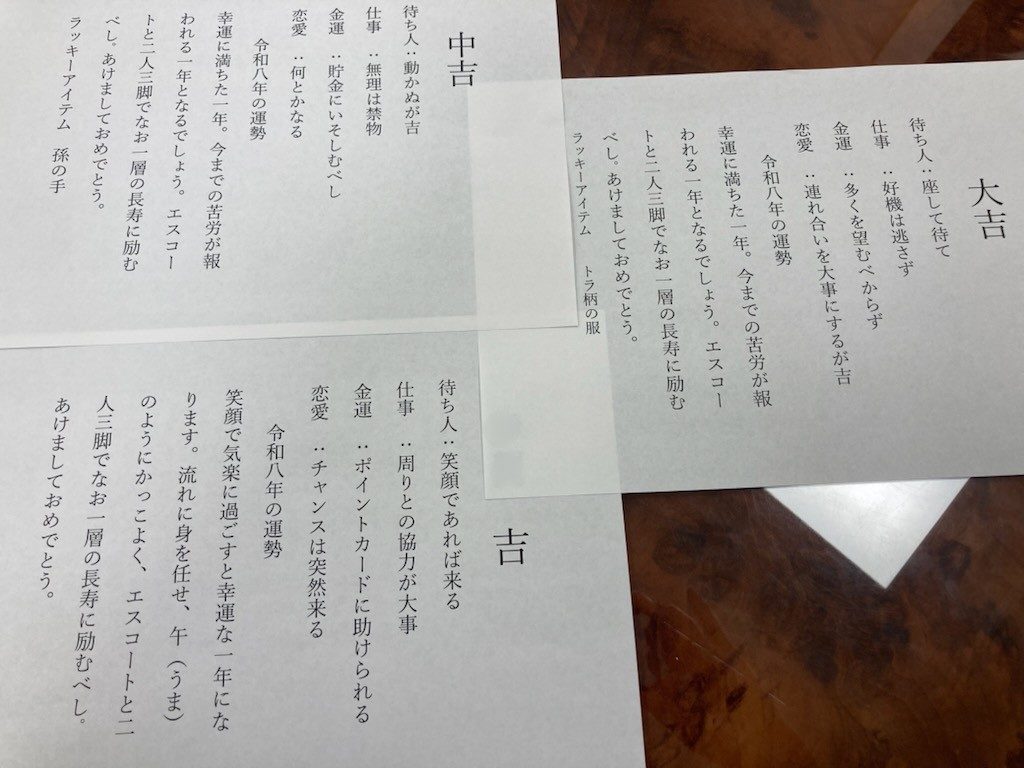 大吉
待ち人：座して待て
仕事　：好機は逃さず
金運　：多くを望むべからず
恋愛　：連れ合いを大事にするが吉
令和八年の運勢
幸運に満ちた一年。今までの苦労が報
われる一年となるでしょう。エスコー
トと二人三脚でなお一層の長寿に励む
べし。あけましておめでとう。
ラッキーアイテム　トラ柄の服
中吉
待ち人：動かぬが吉
仕事　：無理は禁物
金運　：貯金にいそしむべし
恋愛　：何とかなる
令和八年の運勢
幸運に満ちた一年。今までの苦労が報
われる一年となるでしょう。エスコー
トと二人三脚でなお一層の長寿に励む
べし。あけましておめでとう。
ラッキーアイテム　孫の手
吉
待ち人：笑顔であれば来る
仕事　：周りとの協力が大事
金運　：ポイントカードに助けられる
恋愛　：チャンスは突然来る
令和八年の運勢
笑顔で気楽に過ごすと幸運な一年にな
ります。流れに身を任せ、午（うま）
のようにかっこよく、エスコートと二
人三脚でなお一層の長寿に励むべし。
あけましておめでとう。